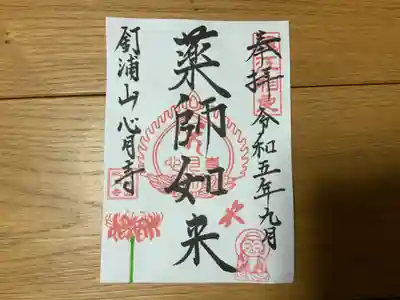 奉拝令和五年九月
薬師如来
釘浦山心月寺